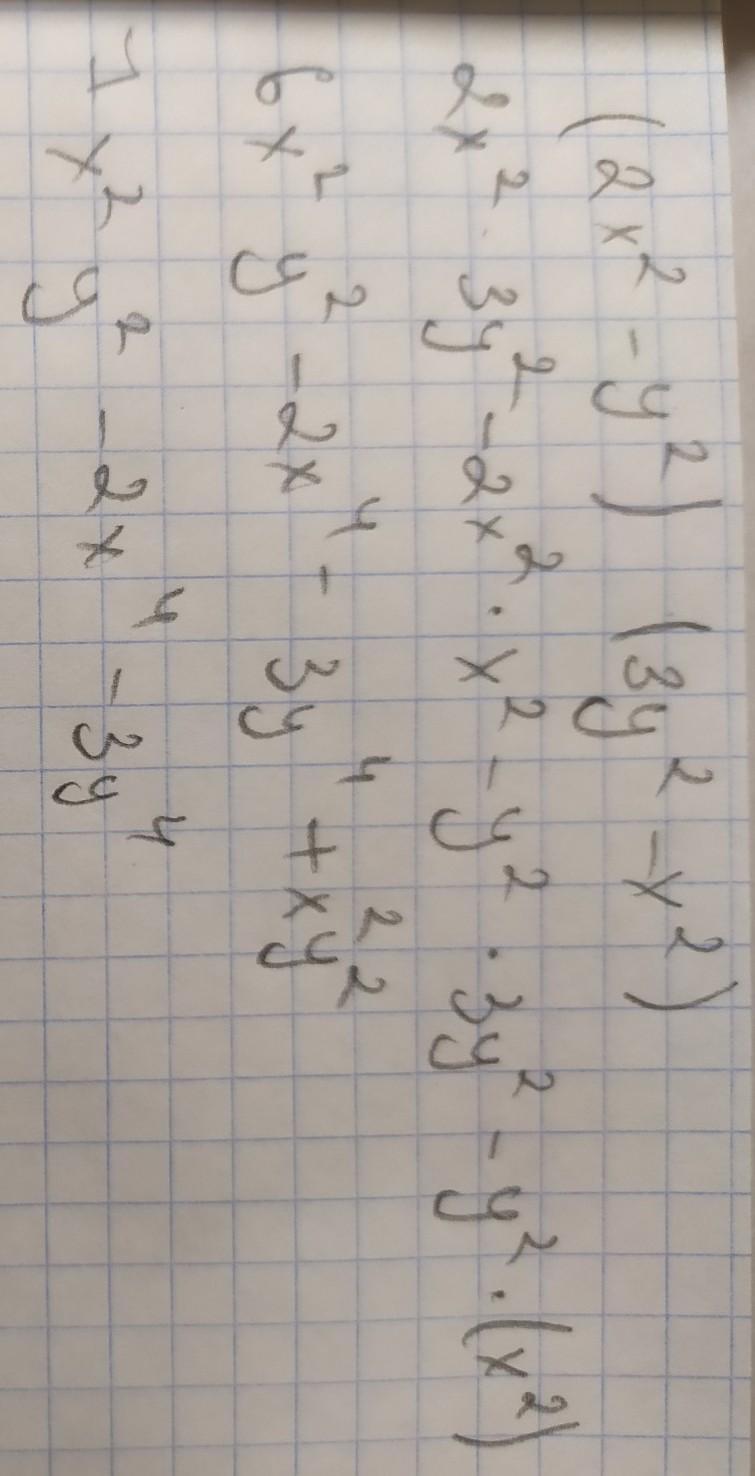 (2x² - y²) (3y² - x²)
2x² · 3y² - 2x² · x² - y² · 3y² - y² · (x²)
6x² y² - 2x⁴ - 3y⁴ + x²y²
7x² y² - 2x⁴ - 3y⁴